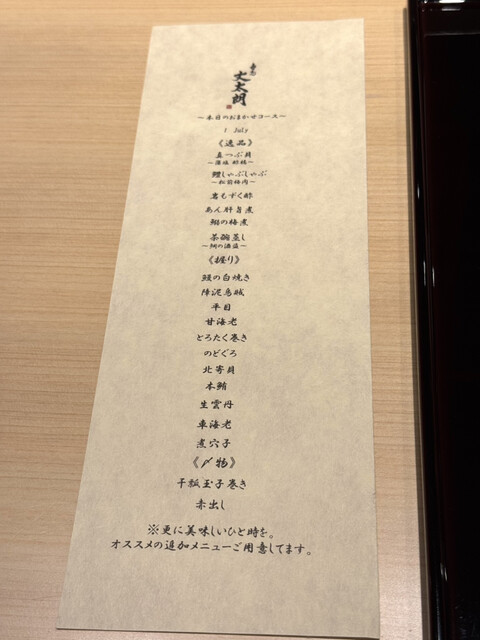 文太朗
～本日のおまかせコース～
1 July
《逸品》
真つぶ貝
～藻塩 酢橘～
鱧しゃぶしゃぶ
～松前梅肉～
岩もずく酢
あん肝旨煮
鰯の梅煮
茶碗蒸し
《握り》
鰻の白焼き
障泥烏賊
平目
甘海老
とろたく巻き
のどぐろ
北寄貝
本鮪
生雲丹
車海老
煮穴子
《〆物》
干瓢玉子巻き
赤出し
※更に美味しいひと時を。
オススメの追加メニューご用意してます。